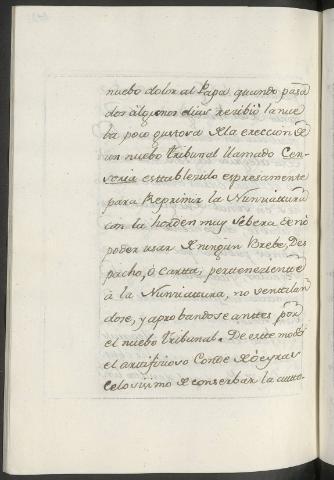 nuebo dolor al Papa, quando pasa
dos algunos dias, recibió la nue
ba poco gustosa de la ereccion de
un nuebo tribunal llamado Cen
soria establecido espresamente
para Reprimir la Nunciatura
con la horden muy sebera de no
poder usar de ningun Brebe, Des
pacho, ò Cartta, perteneziente
à la Nunciattura, no ventilan
dose, y aprobandose antes por
el nuebo tribunal. De este modo
el artificioso Conde de Oeyras
Celosisimo de conserbar la autto-